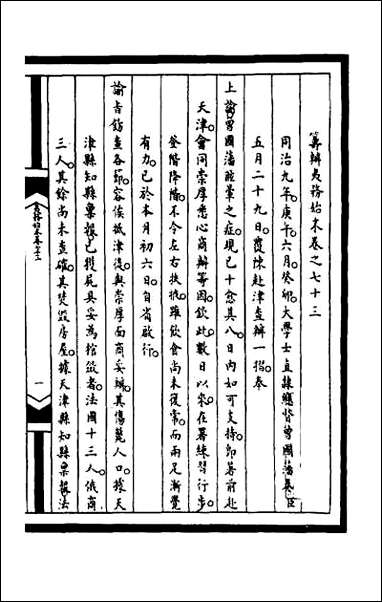 籌辦夷務始末卷之七十三
同治九年庚午六月癸卯大學士直隸總督曾國藩奏臣
五月二十九日覆陳赴津查辦一摺奉
上諭曾國藩眩暈之症現已十愈其八日內如可支持即著前赴
天津會同崇厚悉心商辦等因欽此數日以來在署練習行步
登階降階不令左右扶掖雖飲食尚未復常而兩足漸覺
有力已於本月初六日自省啟行
諭旨飭查各節容俟抵津後與崇厚面商妥辦其傷斃人口據天
津縣知縣稟報已獲屍具妥為棺斂者法國十三人俄商
三人其餘尚未查確其焚毀房屋據天津縣知縣稟報法
一